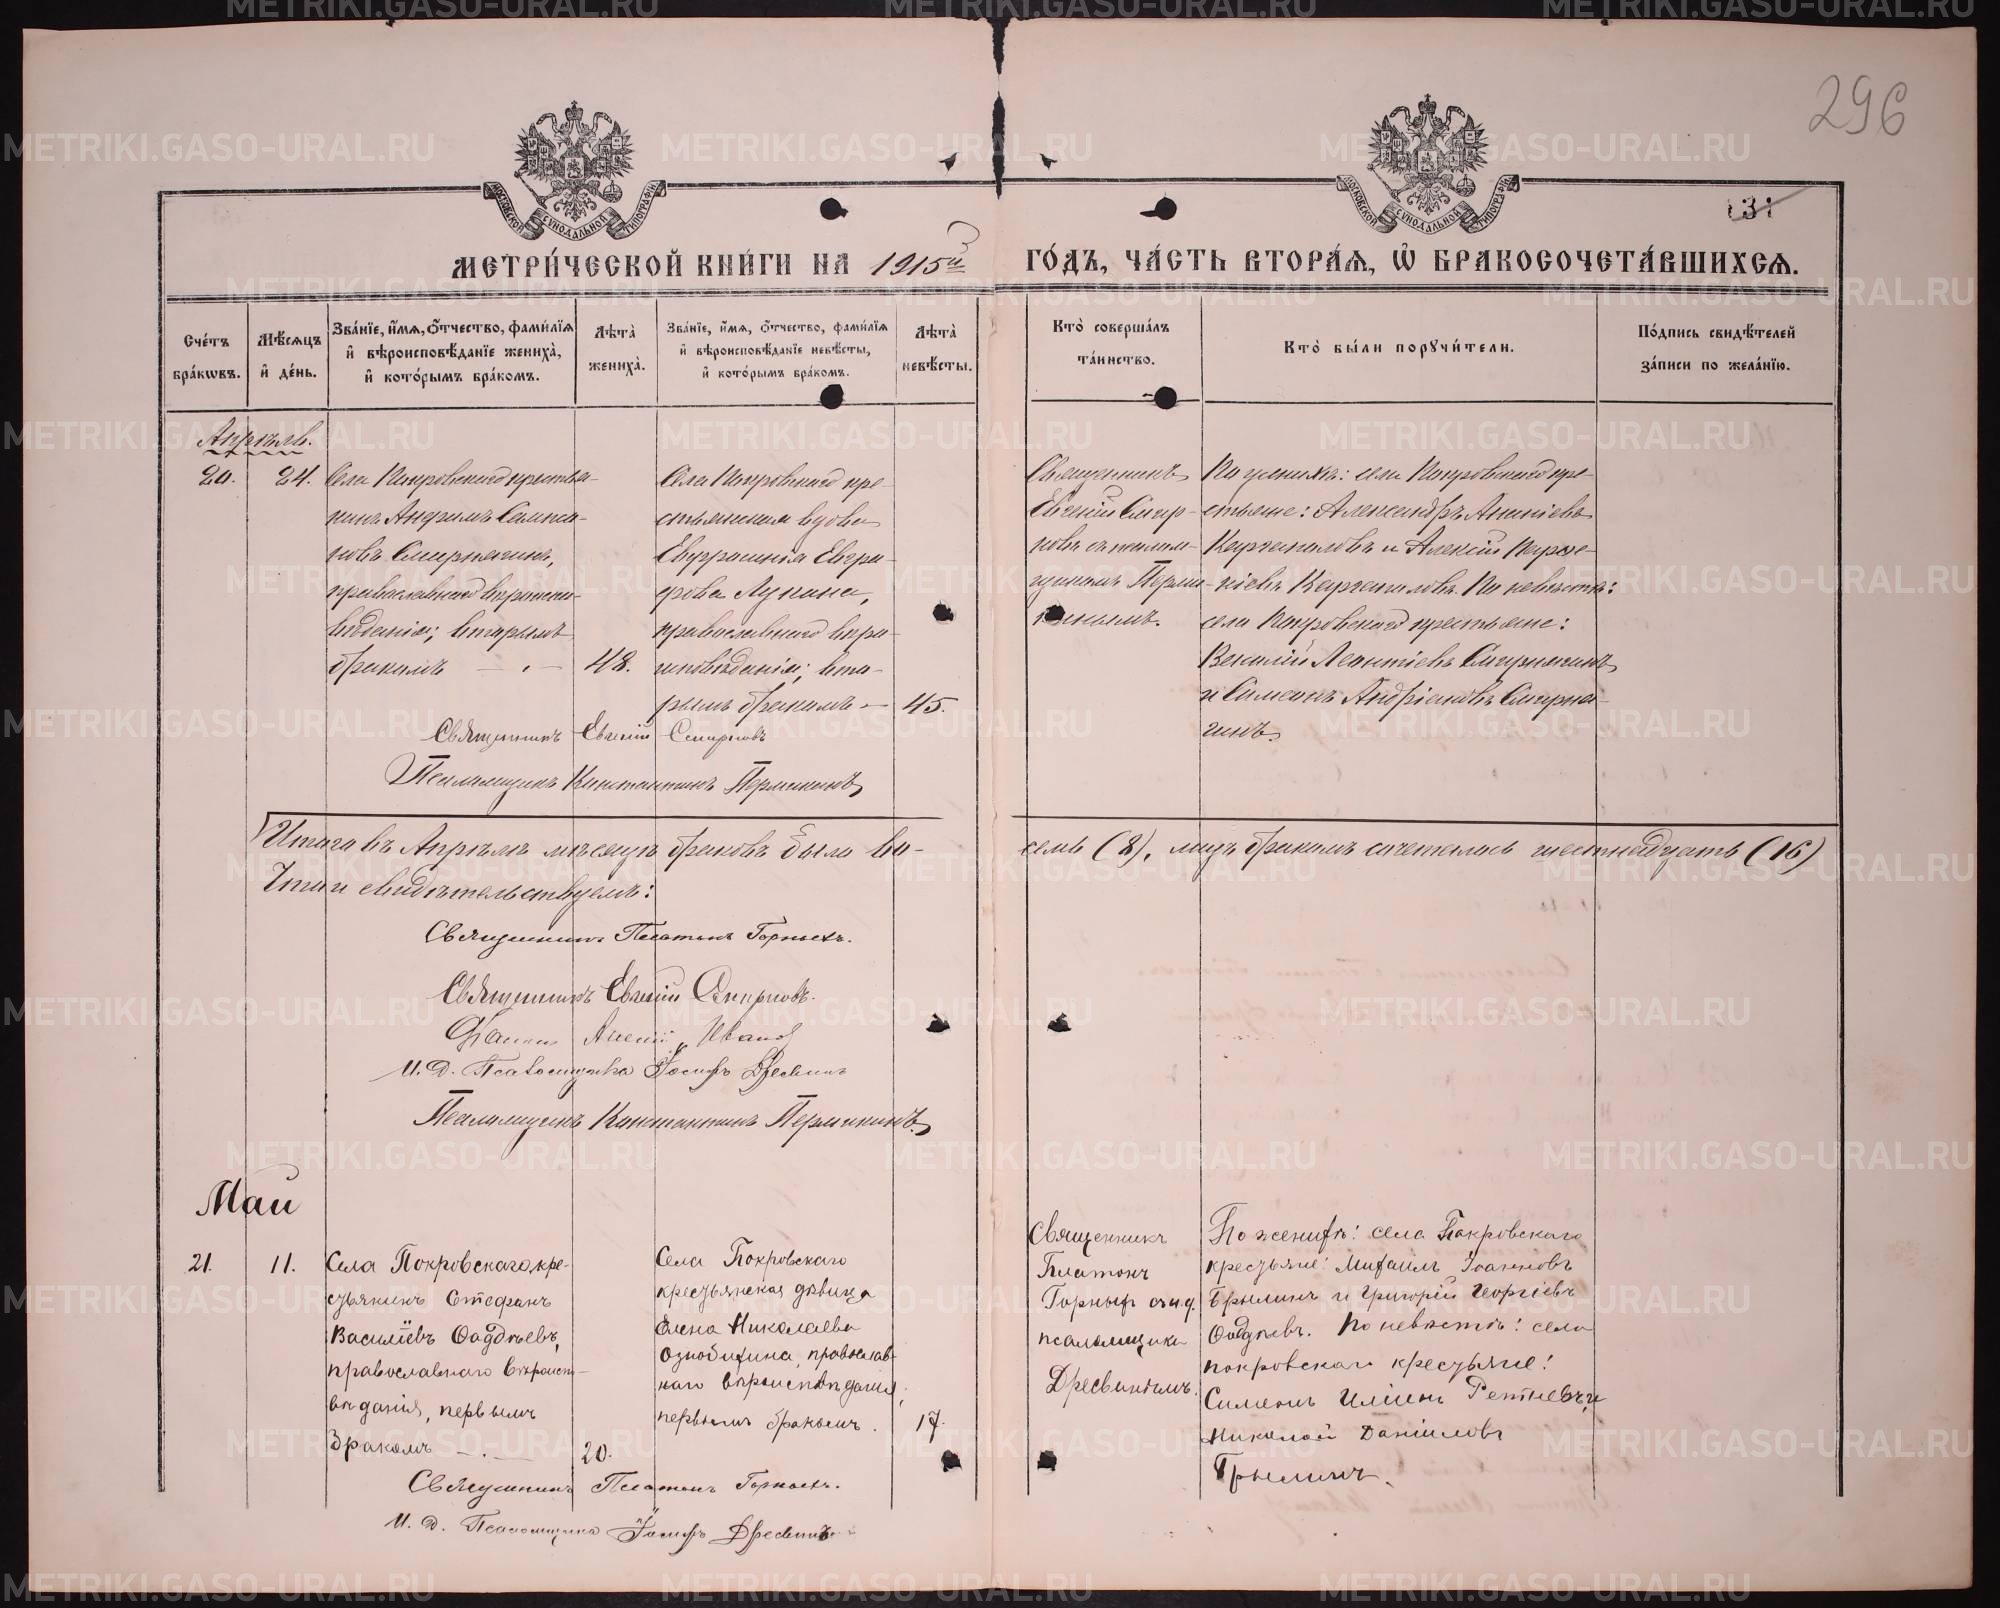 296
131
МЕТРИ́ЧЕСКОЙ КНИ́ГИ НА 1915й ГО́ДЪ, ЧА́СТЬ ВТОРА́Ѧ, Ѡ҆ БРАКОСОЧЕТА́ВШИХСѦ.
Сче́тъ бра́кωвъ.
Мѣ́сѧцъ и҆ де́нь.
Зва́нїе, и҆́мѧ, ѻ҆́тчество, фами́лїѧ
и҆ вѣроисповѣ́данїе жениха̀,
и҆ кото́рымъ бра́комъ.
Лѣта̀ жениха̀.
Зва́нїе, и҆́мѧ, ѻ҆́тчество, фами́лїѧ
и҆ вѣроисповѣ́данїе невѣ́сты,
и҆ кото́рымъ бра́комъ.
Лѣта̀ невѣ́сты.
Кто̀ соверша́лъ та́инство.
Кто̀ бы́ли порꙋчи́тели.
По́дпись свидѣ́телей за́писи по жела́нїю.
Апрѣль.
20.
24.
Села Покровскаго крестья-
нинъ Анфимъ Сампсо-
новъ Смирнягинъ,
православнаго вѣроиспо-
вѣданія; вторымъ
бракомъ — " —
48.
Села Покровскаго кре-
стьянская вдова
Евфрасинія Евгра-
фова Лукина,
православнаго вѣро-
исповѣданія; вто-
рымъ бракомъ —
45.
Священникъ
Евгеній Смир-
новъ съ псалом-
щикомъ Перми-
кинымъ.
По женихѣ: села Покровскаго кре-
стьяне: Александръ Ананіевъ
Каргаполовъ и Алексій
Каргаполовъ. По невѣстѣ:
села Покровскаго крестьяне:
Василій Леонтіевъ Смирнягинъ
и Симеонъ Андріановъ Смирня-
гинъ.
Священникъ Евгеній Смирновъ
Псаломщикъ Константинъ Пермикинъ
Итого въ Апрѣлѣ мѣсяцѣ браковъ было во-
семь (8), лицъ бракомъ сочеталось шестнадцать (16)
Что и свидѣтельствуемъ:
Священникъ Платонъ Горныхъ.
Священникъ Евгеній Смирновъ.
Діаконъ Иванов
И. Д. Псаломщика Іосифъ Дресвинъ
Псаломщикъ Константинъ Пермикинъ
Май
21.
11.
Села Покровскаго, кре-
стьянинъ Стефанъ
Василіевъ Ѳаддѣевъ,
православнаго вѣроиспо-
вѣданія, первымъ
бракомъ — . —
20.
Села Покровскаго
крестьянская дѣвица
Елена Николаева
Ознобихина, православ-
наго вѣроисповѣданія,
первымъ бракомъ.
17.
Священникъ
Платонъ
Горныхъ съ и.д.
псаломщика
Дресвинымъ.
По женихѣ: села Покровскаго
крестьяне: Михаилъ Іоанновъ
Брылинъ и Григорій Георгіевъ
Ѳаддѣевъ. По невѣстѣ: села
Покровскаго крестьяне:
Симеонъ Иліинъ Ретневъ и
Николай Даніиловъ
Брылинъ.
Священникъ Платонъ Горныхъ.
И. Д. Псаломщика Іосифъ Дресвинъ
METRIKI.GASO-URAL.RU